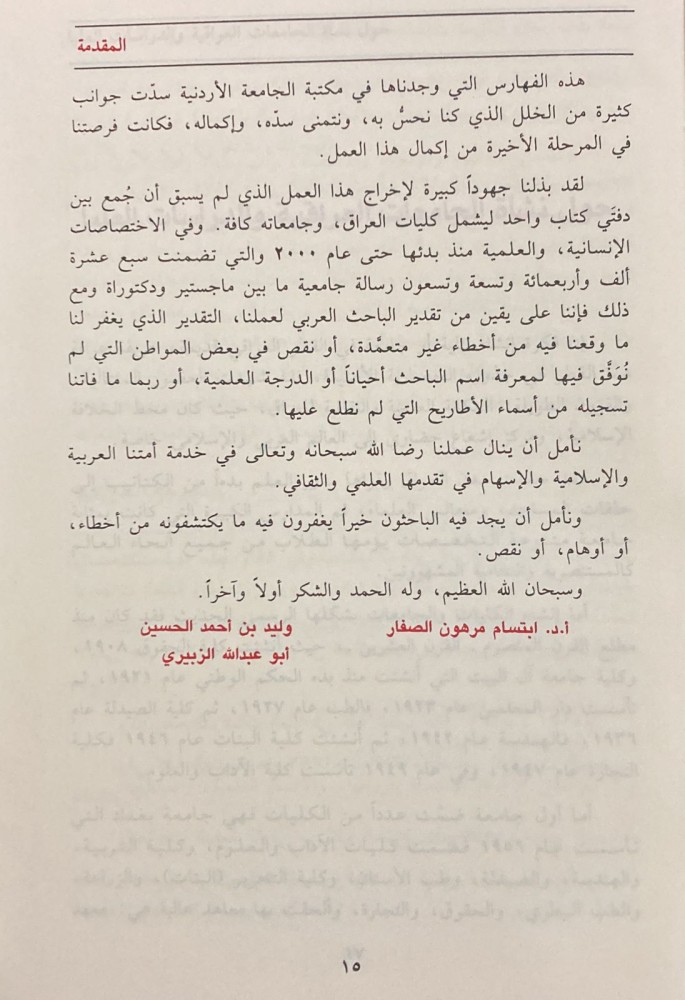 المقدمة
هذه الفهارس التي وجدناها في مكتبة الجامعة الأردنية سدّت جوانب
كثيرة من الخلل الذي كنا نحسُّ به، ونتمنى سدّه، وإكماله، فكانت فرصتنا
في المرحلة الأخيرة من إكمال هذا العمل.
لقد بذلنا جهوداً كبيرة لإخراج هذا العمل الذي لم يسبق أن جُمع بين
دفتَي كتاب واحد ليشمل كليات العراق، وجامعاته كافة. وفي الاختصاصات
الإنسانية، والعلمية منذ بدئها حتى عام ٢٠٠٠ والتي تضمنت سبع عشرة
ألف وأربعمائة وتسعة وتسعون رسالة جامعية ما بين ماجستير ودكتوراة ومع
ذلك فإننا على يقين من تقدير الباحث العربي لعملنا، التقدير الذي يغفر لنا
ما وقعنا فيه من أخطاء غير متعمَّدة، أو نقص في بعض المواطن التي لم
نُوَفَّق فيها لمعرفة اسم الباحث أحياناً أو الدرجة العلمية، أو ربما ما فاتنا
تسجيله من أسماء الأطاريح التي لم نطلع عليها.
نأمل أن ينال عملنا رضا الله سبحانه وتعالى في خدمة أمتنا العربية
والإسلامية والإسهام في تقدمها العلمي والثقافي.
ونأمل أن يجد فيه الباحثون خيراً يغفرون فيه ما يكتشفونه من أخطاء،
أو أوهام، أو نقص.
وسبحان الله العظيم، وله الحمد والشكر أولاً وآخراً.
أ.د. ابتسام مرهون الصفار
وليد بن أحمد الحسين
أبو عبدالله الزبيري
١٥